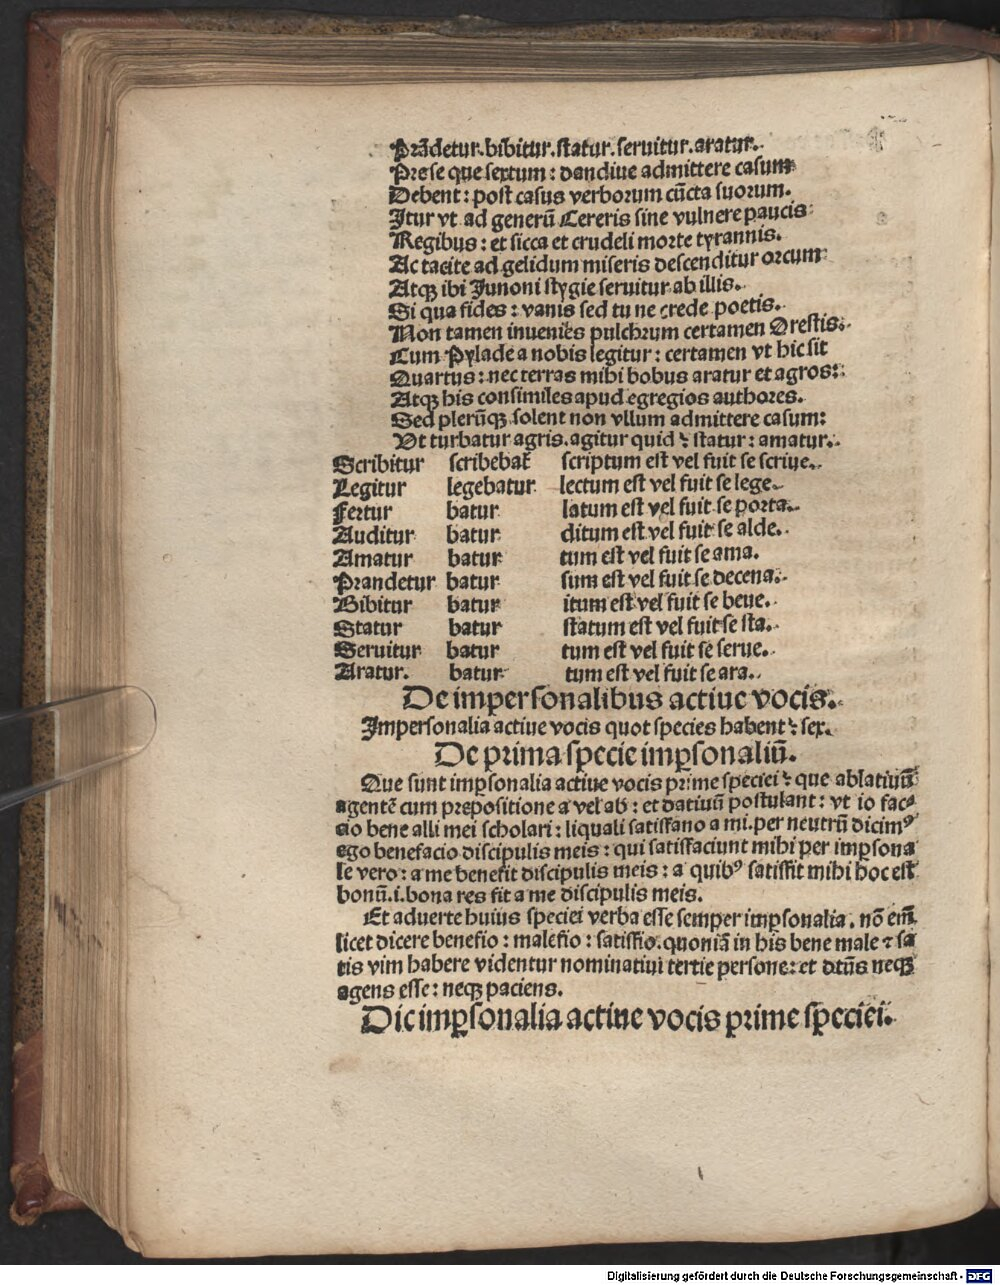 Prādetur.bibitur.statur.seruitur.aratur.
Prese que sextum: dandiue admittere casum
Debent: post casus verborum cūcta suorum.
Itur vt ad generū Cereris sine vulnere paucis
Regibus: et sicca et crudeli morte tyrannis.
Ac tacite ad gelidum miseris descenditur orcum
Atqꝫ ibi Junoni stygie seruitur ab illis.
Si qua fides: vanis sed tu ne crede poetis.
Non tamen inuenies pulchrum certamen Orestis.
Cum Pylade a nobis legitur: certamen vt hic sit
Quartus: nec terras mihi bobus aratur et agros:
Atqꝫ his consimiles apud egregios authores.
Sed plerūqꝫ solent non vllum admittere casum:
Ut turbatur agris.agitur quid ⁊ statur: amatur.
Scribitur scribebat̄ scriptum est vel fuit se scriue.
Legitur legebatur lectum est vel fuit se lege.
Fertur batur latum est vel fuit se porta.
Auditur batur ditum est vel fuit se alde.
Amatur batur tum est vel fuit se ama.
Prandetur batur sum est vel fuit se decena.
Bibitur batur itum est vel fuit se beue.
Statur batur statum est vel fuit se sta.
Seruitur batur tum est vel fuit se serue.
Aratur. batur tum est vel fuit se ara.
De impersonalibus actiue vocis.
Impersonalia actiue vocis quot species habent: sex.
De prima specie imꝑsonaliū.
Que sunt imꝑsonalia actiue vocis prime speciei: que ablatiuū
agentē cum prepositione a vel ab: et datiuū postulant: vt io fac
cio bene alli mei scholari: li quali satisfano a mi.per neutrū dicimꝰ
ego benefacio discipulis meis: qui satisfaciunt mihi per imꝑsona
le vero: a me benefit discipulis meis: a quibꝰ satisfit mihi hoc est
bonū.i.bona res fit a me discipulis meis.
Et aduerte huius speciei verba esse semper imꝑsonalia. nō em̄
licet dicere benefio: malefio: satisfio.quoniā in his bene male ⁊ sa
tis vim habere videntur nominatiui tertie persone: et dt̄us neqꝫ
agens esse: neqꝫ paciens.
Dic imꝑsonalia actiue vocis prime speciei.
Digitalisierung gefördert durch die Deutsche Forschungsgemeinschaft - DFG